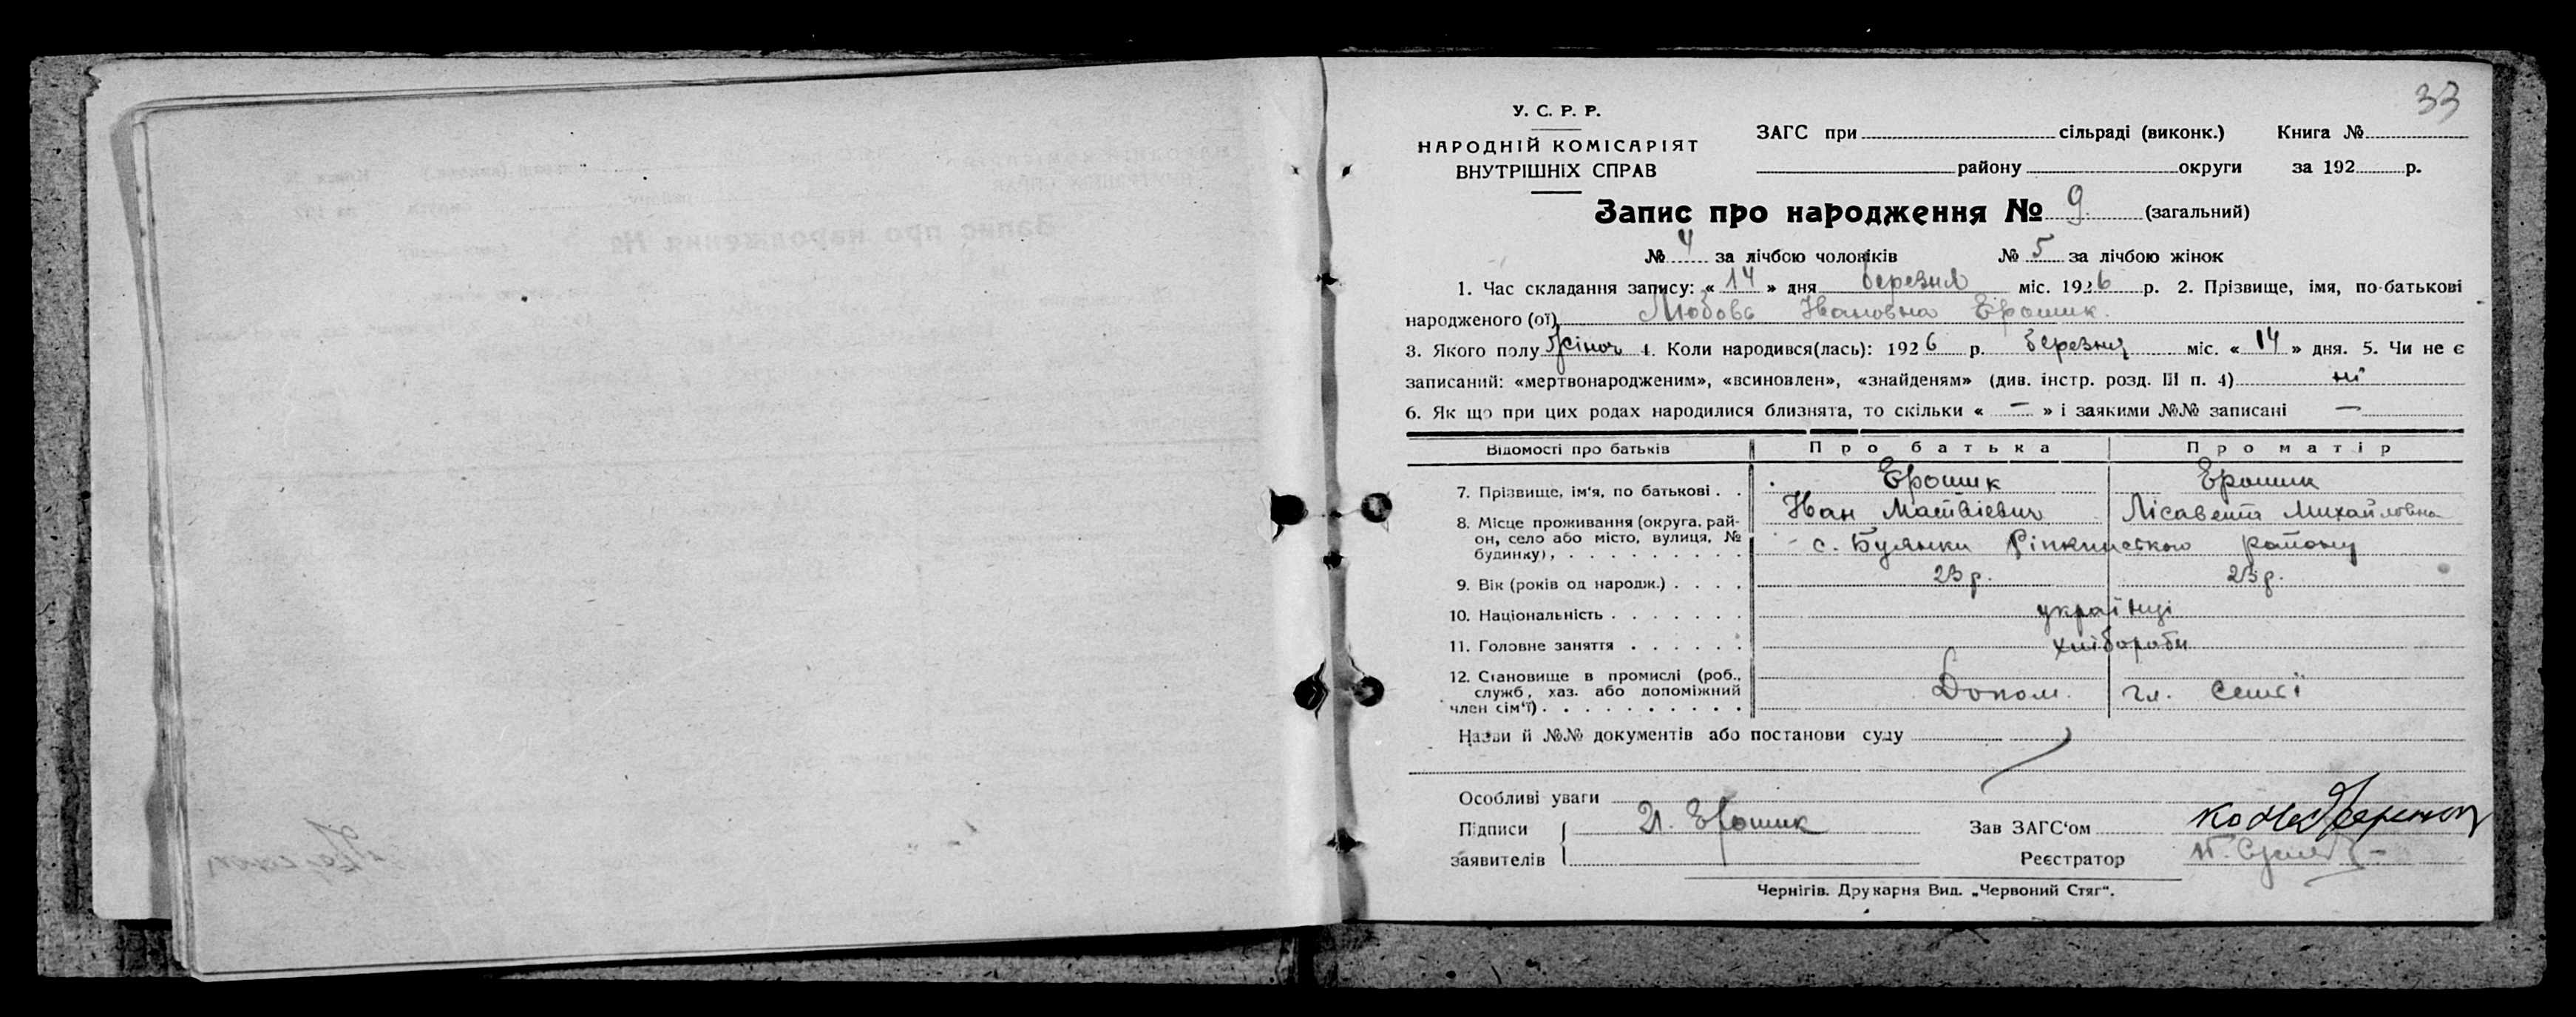 33
У. С. Р. Р.
НАРОДНІЙ КОМІСАРІЯТ
ВНУТРІШНІХ СПРАВ
ЗАГС при сільраді (виконк.) Книга №
району округи за 192 р.
Запис про народження № 9 (загальний)
№ 4 за лічбою чоловіків № 5 за лічбою жінок
1. Час складання запису: « 14 » дня березня міс. 1926 р. 2. Прізвище, імя, по-батькові
народженого (ої) Любовь Ивановна Ерошик
3. Якого полу жіноч 4. Коли народився(лась): 1926 р. березня міс. « 14 » дня. 5. Чи не є
записаний: «мертвонародженим», «всиновлен», «знайденям» (див. інстр. розд. III п. 4) ні
6. Як що при цих родах народилися близнята, то скільки « — » і заякими №№ записані —
Відомості про батьків Про батька Про матір
7. Прізвище, ім'я, по батькові . . Ерошик Ерошик
Иван Матвіевич Лісавета Михайловна
8. Місце проживання (округа, рай-
он, село або місто, вулиця, №
будинку), . . . . . . . . . с. Буянки Ріпкинського району
9. Вік (років од народж.) . . . . 23 р. 23 р.
10. Національність . . . . . . . українці
11. Головне заняття . . . . . . хлібороби
12. Становище в промислі (роб.,
служб, хаз. або допоміжний
член сім'ї) . . . . . . . . . . Допом. гл. семії
Назви й №№ документів або постанови суду
Особливі уваги
Підписи И. Ерошик Зав ЗАГС'ом
заявителів Реєстратор
Чернігів. Друкарня Вид. „Червоний Стяг“.